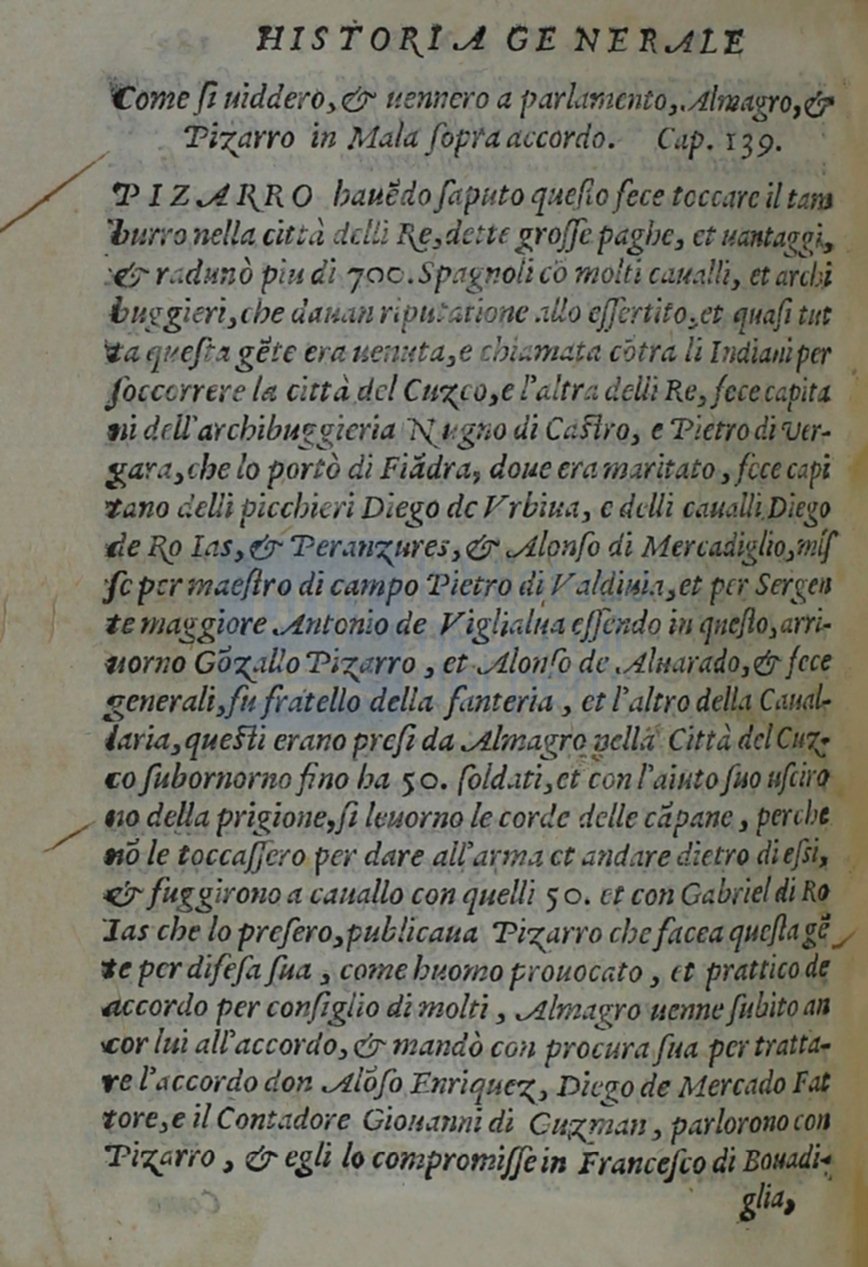 HISTORIA GENERALE
Come ſi uiddero, & uennero a parlamento, Almagro, &
Pizarro in Mala ſopra accordo. Cap. 139.
PIZARRO hauēdo ſaputo queſto fece toccare il tam
burro nella città delli Re, dette groſſe paghe, et uantaggi,
& radunò piu di 700. Spagnoli cō molti caualli, et archi
buggieri, che dauan riputatione allo eſſertito, et quaſi tut
ta queſta gēte era uenuta, e chiamata cōtra li Indiani per
ſoccorrere la città del Cuzco, e l'altra delli Re, fece capita
ni dell'archibuggieria Nugno di Caſtro, e Pietro di Ver-
gara, che lo portò di Fiādra, doue era maritato, fece capi
tano delli picchieri Diego de Vrbiua, e delli caualli Diego
de Ro Ias, & Peranzures, & Alonſo di Mercadiglio, miſ
ſe per maeſtro di campo Pietro di Valdiuia, et per Sergen
te maggiore Antonio de Viglialua eſſendo in queſto, arri-
uorno Gōzallo Pizarro, et Alonſo de Aluarado, & fece
generali, ſu fratello della fanteria, et l'altro della Caual-
laria, queſti erano preſi da Almagro nella Città del Cuz-
co ſubornorno fino ha 50. ſoldati, et con l'aiuto ſuo uſciro
no della prigione, ſi leuorno le corde delle cāpane, perche
nō le toccaſſero per dare all'arma et andare dietro di eſsi,
& fuggirono a cauallo con quelli 50. et con Gabriel di Ro
Ias che lo preſero, publicaua Pizarro che facea queſta gē
te per difeſa ſua, come huomo prouocato, et prattico de
accordo per conſiglio di molti, Almagro uenne ſubito an
cor lui all'accordo, & mandò con procura ſua per tratta-
re l'accordo don Alōſo Enriquez, Diego de Mercado Fat
tore, e il Contadore Giouanni di Guzman, parlorono con
Pizarro, & egli lo compromiſſe in Franceſco di Bouadi-
glia,